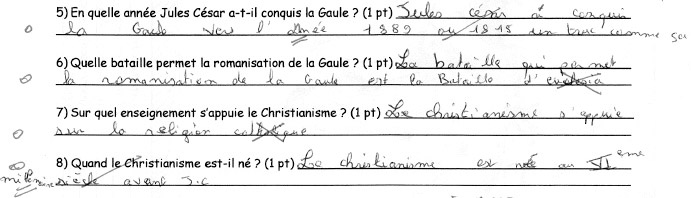 5) En quelle année Jules César a-t-il conquis la Gaule ? (1 pt) Jules césar à conquri
0 la Gaule vers l'année 1889 ou 1818 un truc comme sa
6) Quelle bataille permet la romanisation de la Gaule ? (1 pt) La bataille qui permet
0 la romanisation de la Gaule est la Bataille d'
7) Sur quel enseignement s'appuie le Christianisme ? (1 pt) Le christianisme s'appuie
0 sur la religion catholique
8) Quand le Christianisme est-il né ? (1 pt) Le christianisme est née au VI ème
0 siècle avant J.C